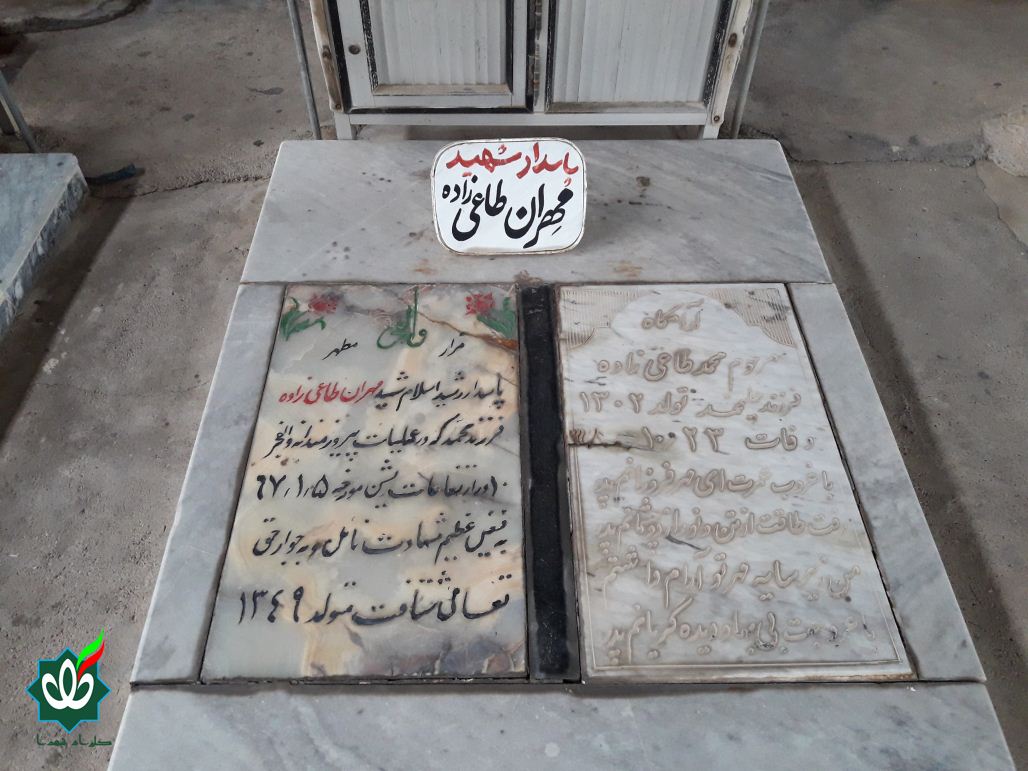 پاسدار شهید
مهران طاعی زاده
مزار مطهر
پاسدار رشید اسلام شهید مهران طاعی زاده
فرزند محمد که در عملیات پیروزمندانه والفجر
۱۰ در ارتفاعات شن مورخه ۶۷،۱،۵
به فیض عظیم شهادت نائل و به جوار حق
تعالی شتافت متولد ۱۳۴۹
آرامگاه
مرحوم محمد طاعی زاده
فرزند تولد ۱۳۰۲
وفات ۲۳ ۱۰
با غروب عمرت ای مهر فروزانم پدر
رفت طاقت از تن و نور از دو چشمم پدر
من زیر سایه مهر تو آرام داشتم
بی دیده گریانم پدر
گلزار شهدا